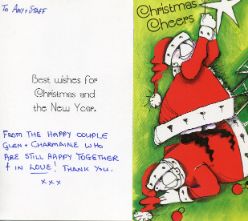 To Amy + Staff
Best wishes for
Christmas and
the New Year.
FROM THE HAPPY COUPLE
GLEN + CHARMAINE WHO
ARE STILL HAPPY TOGETHER
+ IN LOVE! THANK YOU.
x x x
Christmas
Cheers